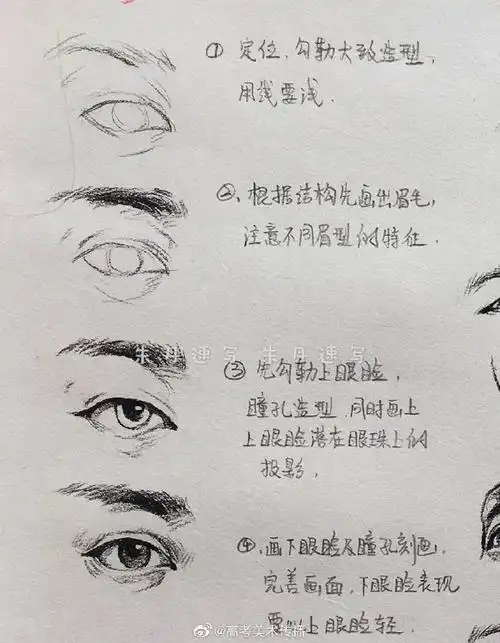 ① 定位、勾勒大致造型，
用线要浅．
②、根据结构先画出眉毛，
注意不同眉型的特征．
朱丹速写 朱丹速写
③ 先勾勒上眼睑，
瞳孔造型．同时画上
上眼睑落在眼珠上的
投影．
④、画下眼睑及瞳孔刻画．
完善画面，下眼睑表现
要似上眼睑轻．
@高考美术传播